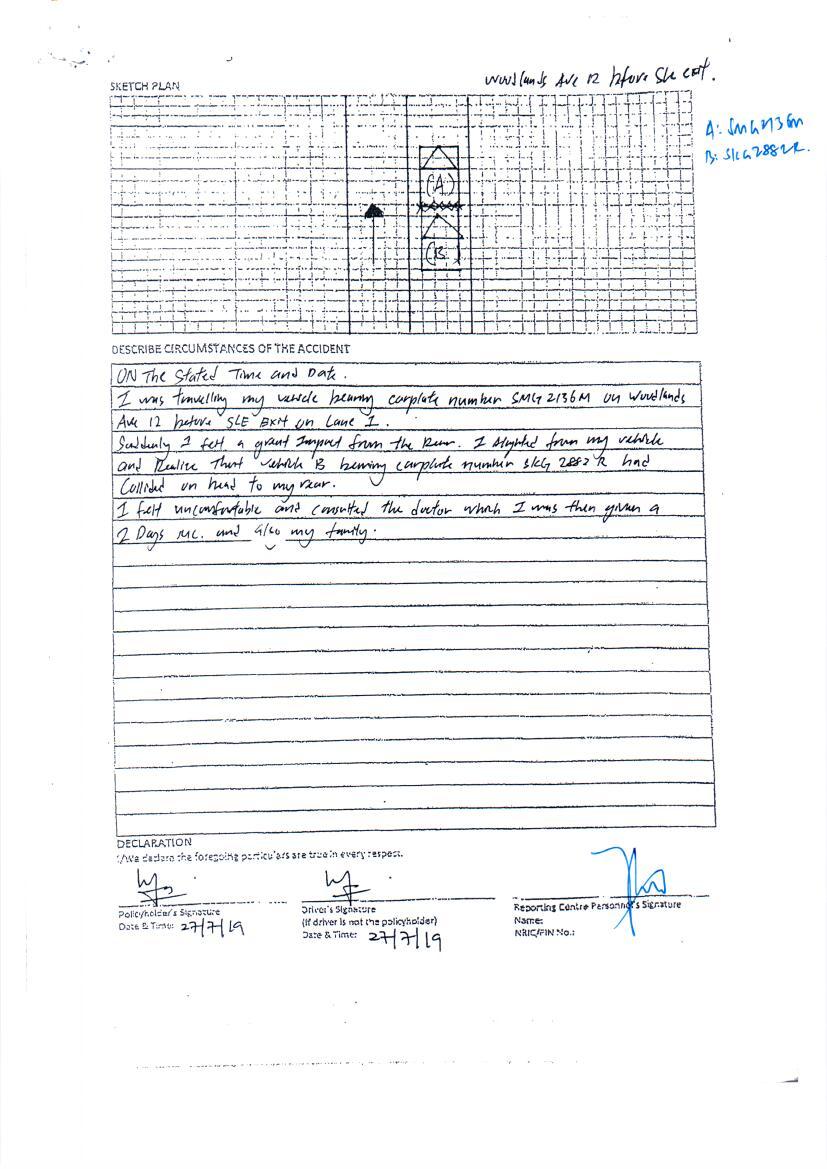 Woodlands Ave 12 before SLE exit.
SKETCH PLAN
A: SMG2136M
B: SKG2882R.
(A)
(B
DESCRIBE CIRCUMSTANCES OF THE ACCIDENT
ON The Stated Time and Date.
I was travelling my vehicle bearing carplate number SMG 2136M on Woodlands
Ave 12 before SLE Exit on Lane 1.
Suddenly I felt a great Impact from the Rear. I alighted from my vehicle
and Realize That vehicle B bearing carplate number SKG 2882 R had
Collided on head to my rear.
I felt uncomfortable and consulted the doctor which I was then given a
2 Days MC. and also my family.
DECLARATION
I/We declare the foregoing particulars are true in every respect.
Policyholder's Signature
Date & Time: 27/7/19
Driver's Signature
(If driver is not the policyholder)
Date & Time: 27/7/19
Reporting Centre Personnel's Signature
Name:
NRIC/FIN No.: